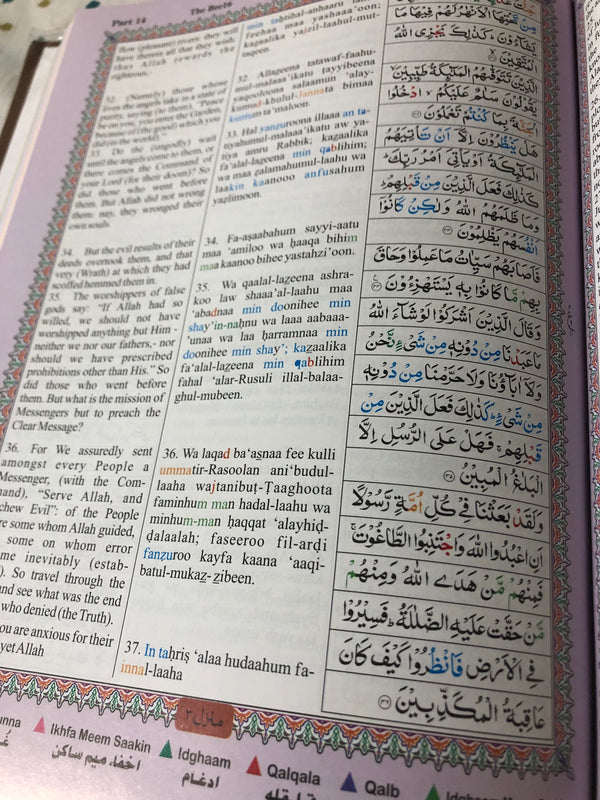 Part 14
The Bee16
flow (pleasant) rivers: they will
have therein all that they wish:
thus Allah rewards the
righteous,-
32. (Namely) those whose
lives the angels take in a state of
purity, saying (to them), "Peace
be on you, you enter the Garden,
because of (the good) which you
did (in the world)."
33. Do the (ungodly) wait
until the angels to come to them, or
there comes the Command of
your Lord (for their doom)? So
did those who went before
them. But Allah did not wrong
them: nay, they wronged their
own souls.
34. But the evil results of their
deeds overtook them, and that
very (Wrath) at which they had
scoffed hemmed them in.
35. The worshippers of false
gods say: "If Allah had so
willed, we should not have
worshipped anything but Him -
neither we nor our fathers,- nor
should we have prescribed
prohibitions other than His." So
did those who went before
them. But what is the mission of
Messengers but to preach the
Clear Message?
36. For We assuredly sent
amongst every People a
Messenger, (with the Com-
mand), "Serve Allah, and
chew Evil": of the People
re some whom Allah guided,
some on whom error
me inevitably (estab-
). So travel through the
and see what was the end
who denied (the Truth).
ou are anxious for their
yet Allah
min tahtihal-anhaaru lahum
feehaa maa yashaaa'oon;
kazaalika yajzil-laahul-mut-
taqeen.
32. Allazeena tatawaf-faahu-
mul-malaaa'ikatu tayyibeena
yaqooloona salaamun 'alay-
kumud-khulul-Jannata bimaa
kuntum ta'maloon.
33. Hal yanzuroona illaaa an ta-
tiyahumul-malaaa'ikatu aw ya-
tiya amru Rabbik; kazaalika
fa'alal-lazeena min qablihim;
wa maa zalamahumul-laahu wa
laakin kaanooo anfusahum
yazlimoon.
34. Fa-aṣaabahum sayyi-aatu
maa 'amiloo wa ḥaaqa bihim
maa kaanoo bihee yastahzi'oon.
35. Wa qaalal-lazeena ashra-
koo law shaaa'al-laahu maa
'abadnaa min doonihee min
shay'in-naḥnu wa laaa aabaaa-
'unaa wa laa ḥarramnaa min
doonihee min shay'; kazaalika
fa'alal-lazeena min qablihim
fahal 'alar-Rusuli illal-balaa-
ghul-mubeen.
36. Wa laqad ba'aṣnaa fee kulli
ummatir-Rasoolan ani'budul-
laaha wajtanibuṭ-Ṭaaghoota
faminhum man hadal-laahu wa
minhum-man ḥaqqat 'alayhiḍ-
ḍalaalah; faseeroo fil-arḍi
fanẓuroo kayfa kaana 'aaqi-
batul-mukaẕ-ẕibeen.
37. In taḥriṣ 'alaa hudaahum fa-
innal-laaha
مِنْ تَحْتِهَا الْاَنْهٰرُ لَهُمْ فِيْهَا مَا
يَشَآءُوْنَ ؕ كَذٰلِكَ يَجْزِى اللّٰهُ
الْمُتَّقِيْنَ
الَّذِيْنَ تَتَوَفّٰىهُمُ الْمَلٰٓئِكَةُ طَيِّبِيْنَ ۙ
يَقُوْلُوْنَ سَلٰمٌ عَلَيْكُمُ ۙ ادْخُلُوا
الْجَنَّةَ بِمَا كُنْتُمْ تَعْمَلُوْنَ
هَلْ يَنْظُرُوْنَ اِلَّاۤ اَنْ تَاْتِيَهُمُ
الْمَلٰٓئِكَةُ اَوْ يَاْتِىَ اَمْرُ رَبِّكَ ؕ
كَذٰلِكَ فَعَلَ الَّذِيْنَ مِنْ قَبْلِهِمْ ؕ
وَمَا ظَلَمَهُمُ اللّٰهُ وَلٰكِنْ كَانُوْۤا
اَنْفُسَهُمْ يَظْلِمُوْنَ
فَاَصَابَهُمْ سَيِّاٰتُ مَا عَمِلُوْا وَحَاقَ
بِهِمْ مَّا كَانُوْا بِهٖ يَسْتَهْزِءُوْنَ
وَقَالَ الَّذِيْنَ اَشْرَكُوْا لَوْ شَآءَ اللّٰهُ
مَا عَبَدْنَا مِنْ دُوْنِهٖ مِنْ شَىْءٍ نَّحْنُ
وَلَاۤ اٰبَآؤُنَا وَلَا حَرَّمْنَا مِنْ دُوْنِهٖ
مِنْ شَىْءٍ ؕ كَذٰلِكَ فَعَلَ الَّذِيْنَ مِنْ
قَبْلِهِمْ ۚ فَهَلْ عَلَى الرُّسُلِ اِلَّا
الْبَلٰغُ الْمُبِيْنُ ۝۳۵
وَلَقَدْ بَعَثْنَا فِىْ كُلِّ اُمَّةٍ رَّسُوْلًا
اَنِ اعْبُدُوا اللّٰهَ وَاجْتَنِبُوا الطَّاغُوْتَ ۚ
فَمِنْهُمْ مَّنْ هَدَى اللّٰهُ وَمِنْهُمْ
مَّنْ حَقَّتْ عَلَيْهِ الضَّلٰلَةُ ؕ فَسِيْرُوْا
فِى الْاَرْضِ فَانْظُرُوْا كَيْفَ كَانَ
عَاقِبَةُ الْمُكَذِّبِيْنَ ۝۳۶
منزل ۳
unna
Ikhfa Meem Saakin
اخفاء میم ساکن
Idghaam
ادغام
Qalqala
قلقله
Qalb
قلب
Idghaam